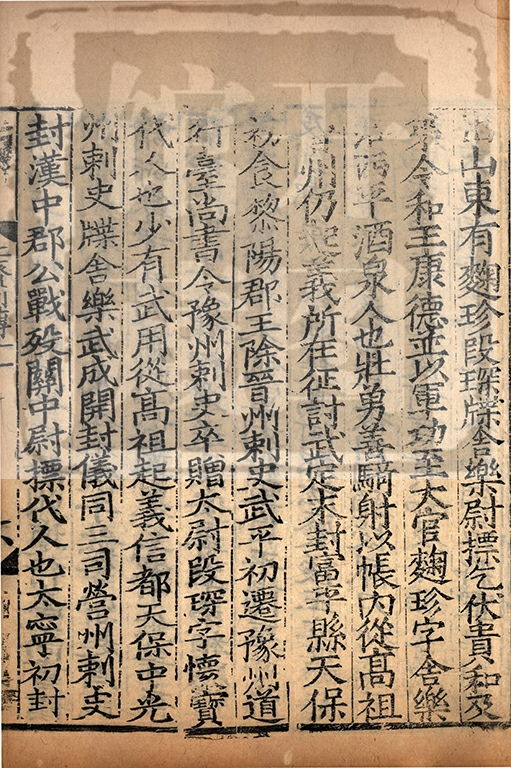 山東有麴珍段琛牒舍樂尉摽乞伏貴和及
令和王康德並以軍功至大官麴珍字舍樂
西平酒泉人也壯勇善騎射以帳內從髙祖
州仍起義所在征討武定末封富平縣天保
初食黎陽郡王除晉州刺史武平初遷豫州道
行臺尚書令豫州刺史卒贈太尉段琛字懷寶
代人也少有武用從髙祖起義信都天保中光
州刺史牒舍樂武成開封儀同三司營州刺史
封漢中郡公戰歿關中尉摽代人也太寧初封